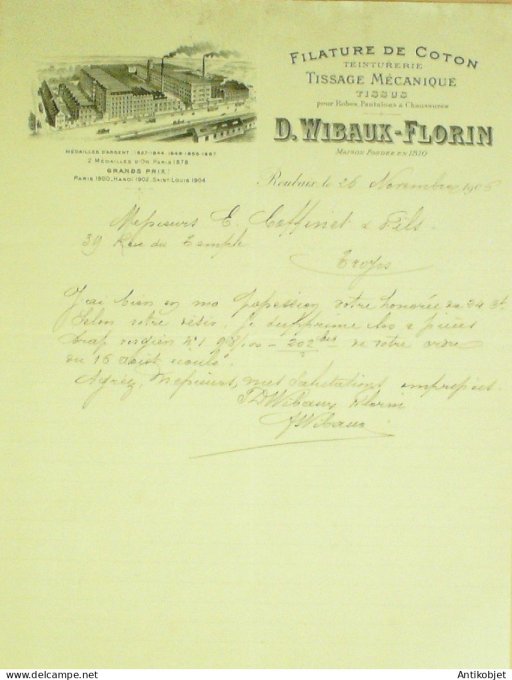 FILATURE DE COTON
TEINTURERIE
TISSAGE MÉCANIQUE
TISSUS
pour Robes, Pantalons & Chaussures
D. WIBAUX-FLORIN
MAISON FONDÉE EN 1810
MÉDAILLES D'ARGENT 1827-1844, 1849-1855-1867
2 MÉDAILLES D'OR PARIS 1878
GRANDS PRIX:
PARIS 1900, HANOÏ 1902, SAINT LOUIS 1904
Roubaix, le 26 Novembre 1906
Messieurs E. Coffinet & Fils
39 Rue du Temple
Troyes
J'ai bien en ma possession votre honorée du 24 ct.
Selon votre désir, je supprime les 2 pièces
de votre ordre
du 16 août écoulé.
Agréez, Messieurs, mes salutations empressées.
D Wibaux Florin
Wibaux
Antikobjet